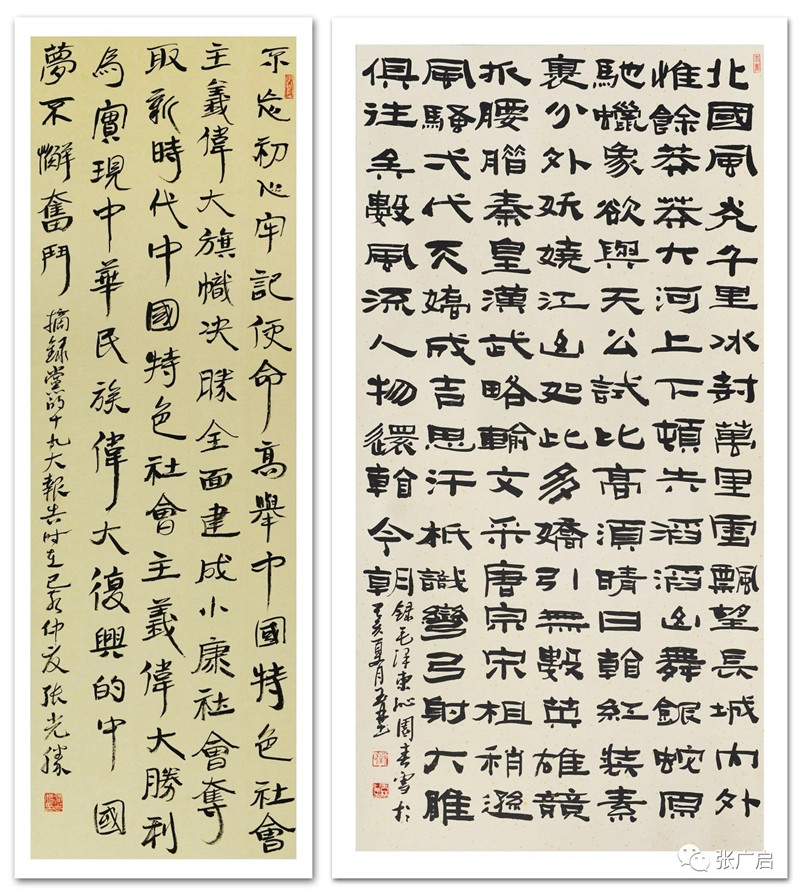 不忘初心牢記使命高舉中國特色社會
主義偉大旗幟决勝全面建成小康社會奪
取新時代中國特色社會主義偉大勝利
為實現中華民族偉大復興的中國
夢不懈奮鬥
摘録党的十九大報告时在己亥仲夏张光勝
北國風光千里冰封萬里雪飄望長城内外
惟餘莽莽大河上下頓失滔滔山舞銀蛇原
馳蠟象欲與天公試比高須晴日看紅裝素
裹分外妖嬈江山如此多嬌引無數英雄競
折腰惜秦皇漢武略輸文采唐宗宋祖稍遜
風騷弌代天嬌成吉思汗衹識彎弓射大雕
俱往矣數風流人物還看今朝
録毛泽東沁園春雪於
己亥夏月
张广启